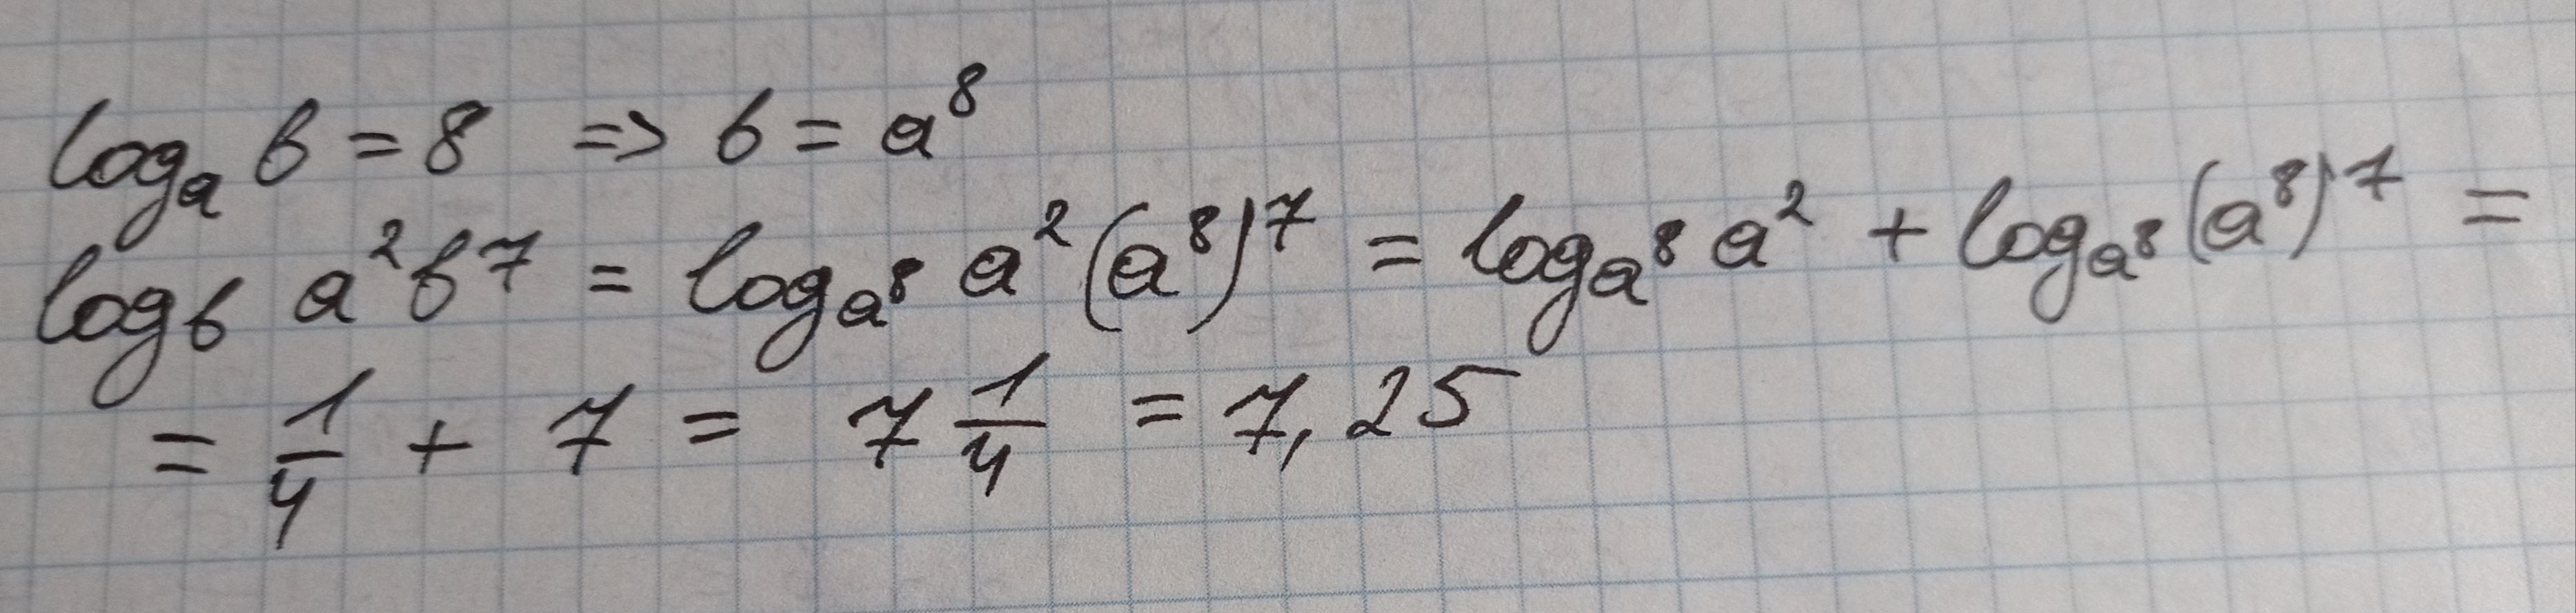 logₐ b = 8 => b = a⁸
log_b a²b⁷ = log_{a⁸} a²(a⁸)⁷ = log_{a⁸} a² + log_{a⁸} (a⁸)⁷ =
= 1/4 + 7 = 7 1/4 = 7,25